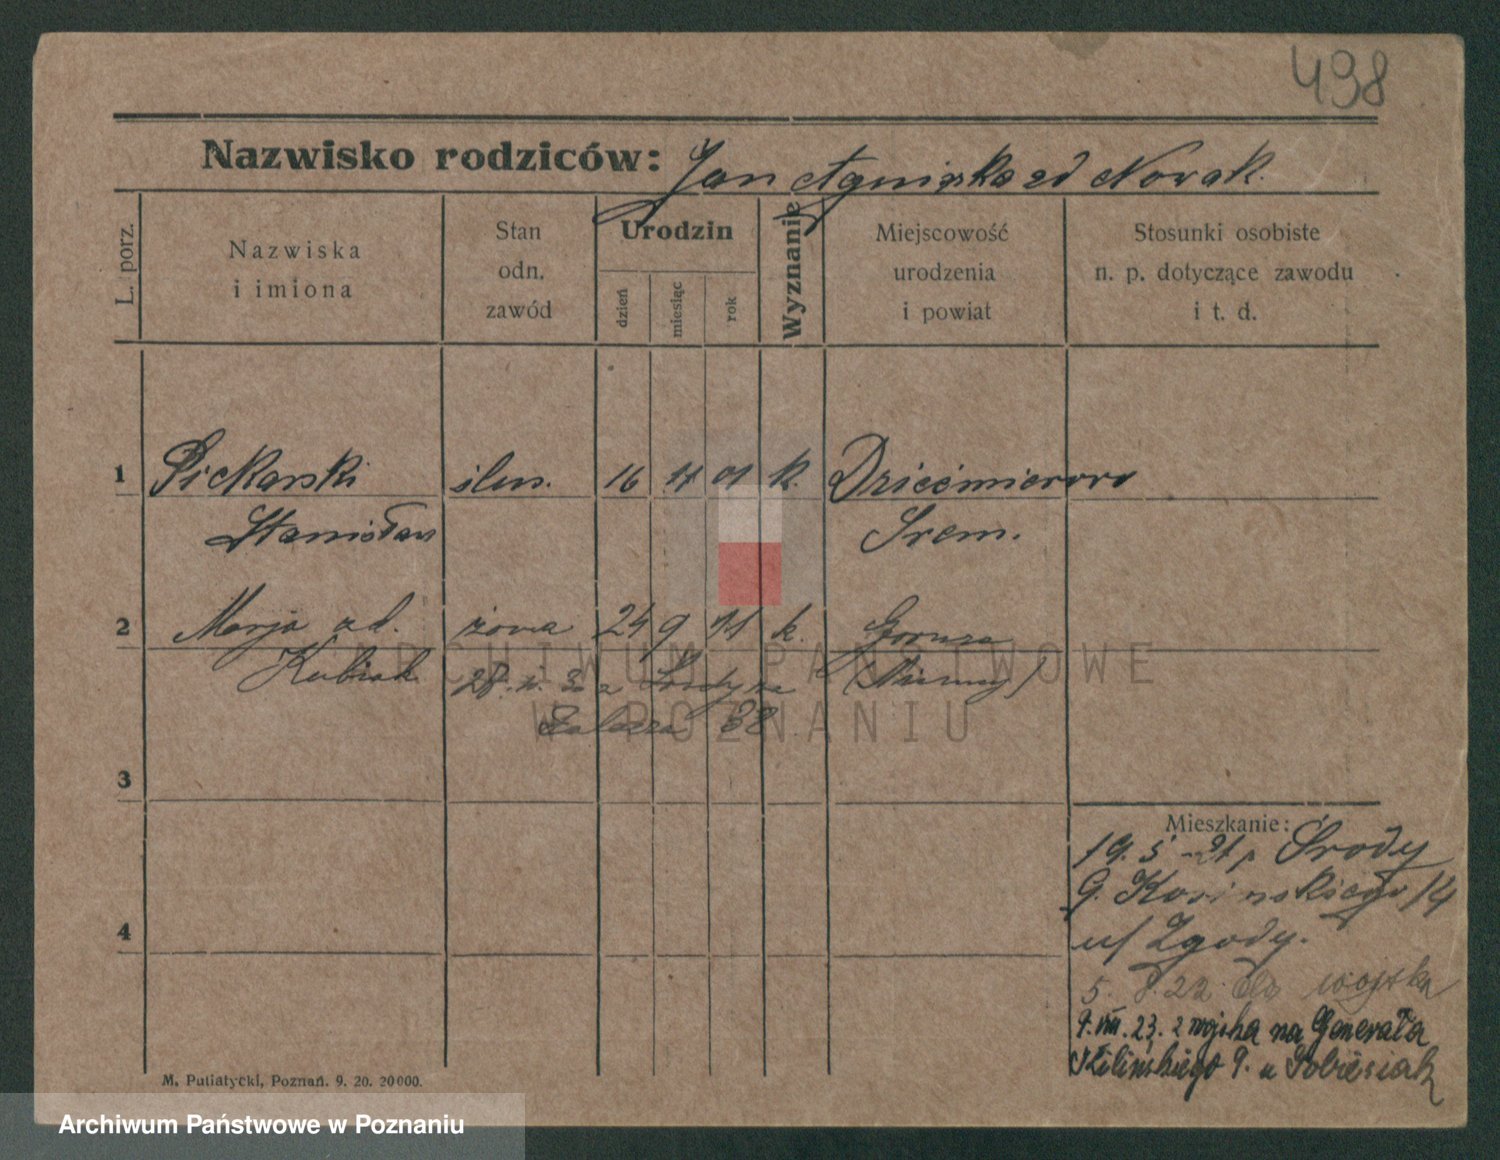 498
Nazwisko rodziców: Jan Agnieszka zd Nowak.
L. porz.
Nazwiska
i imiona
Stan
odn.
zawód
Urodzin
dzień
miesiąc
rok
Wyznanie
Miejscowość
urodzenia
i powiat
Stosunki osobiste
n. p. dotyczące zawodu
i t. d.
1 Piekarski ślus. 16 01 k. Dziećmierowo
Stanisław Śrem.
2 Marja zd. żona 24 9 11 k.
Kubiak (Niemcy)
ARCHIWUM PAŃSTWOWE
W POZNANIU
3
4
Mieszkanie:
19. 5 21 Środy
14
u/ Zgody.
5. 8. 22 do wojska
9. VIII. 23. z wojska na Generała
Kilińskiego 9. u Sobiesiak
M. Putiatycki, Poznań. 9. 20. 20000.
Archiwum Państwowe w Poznaniu